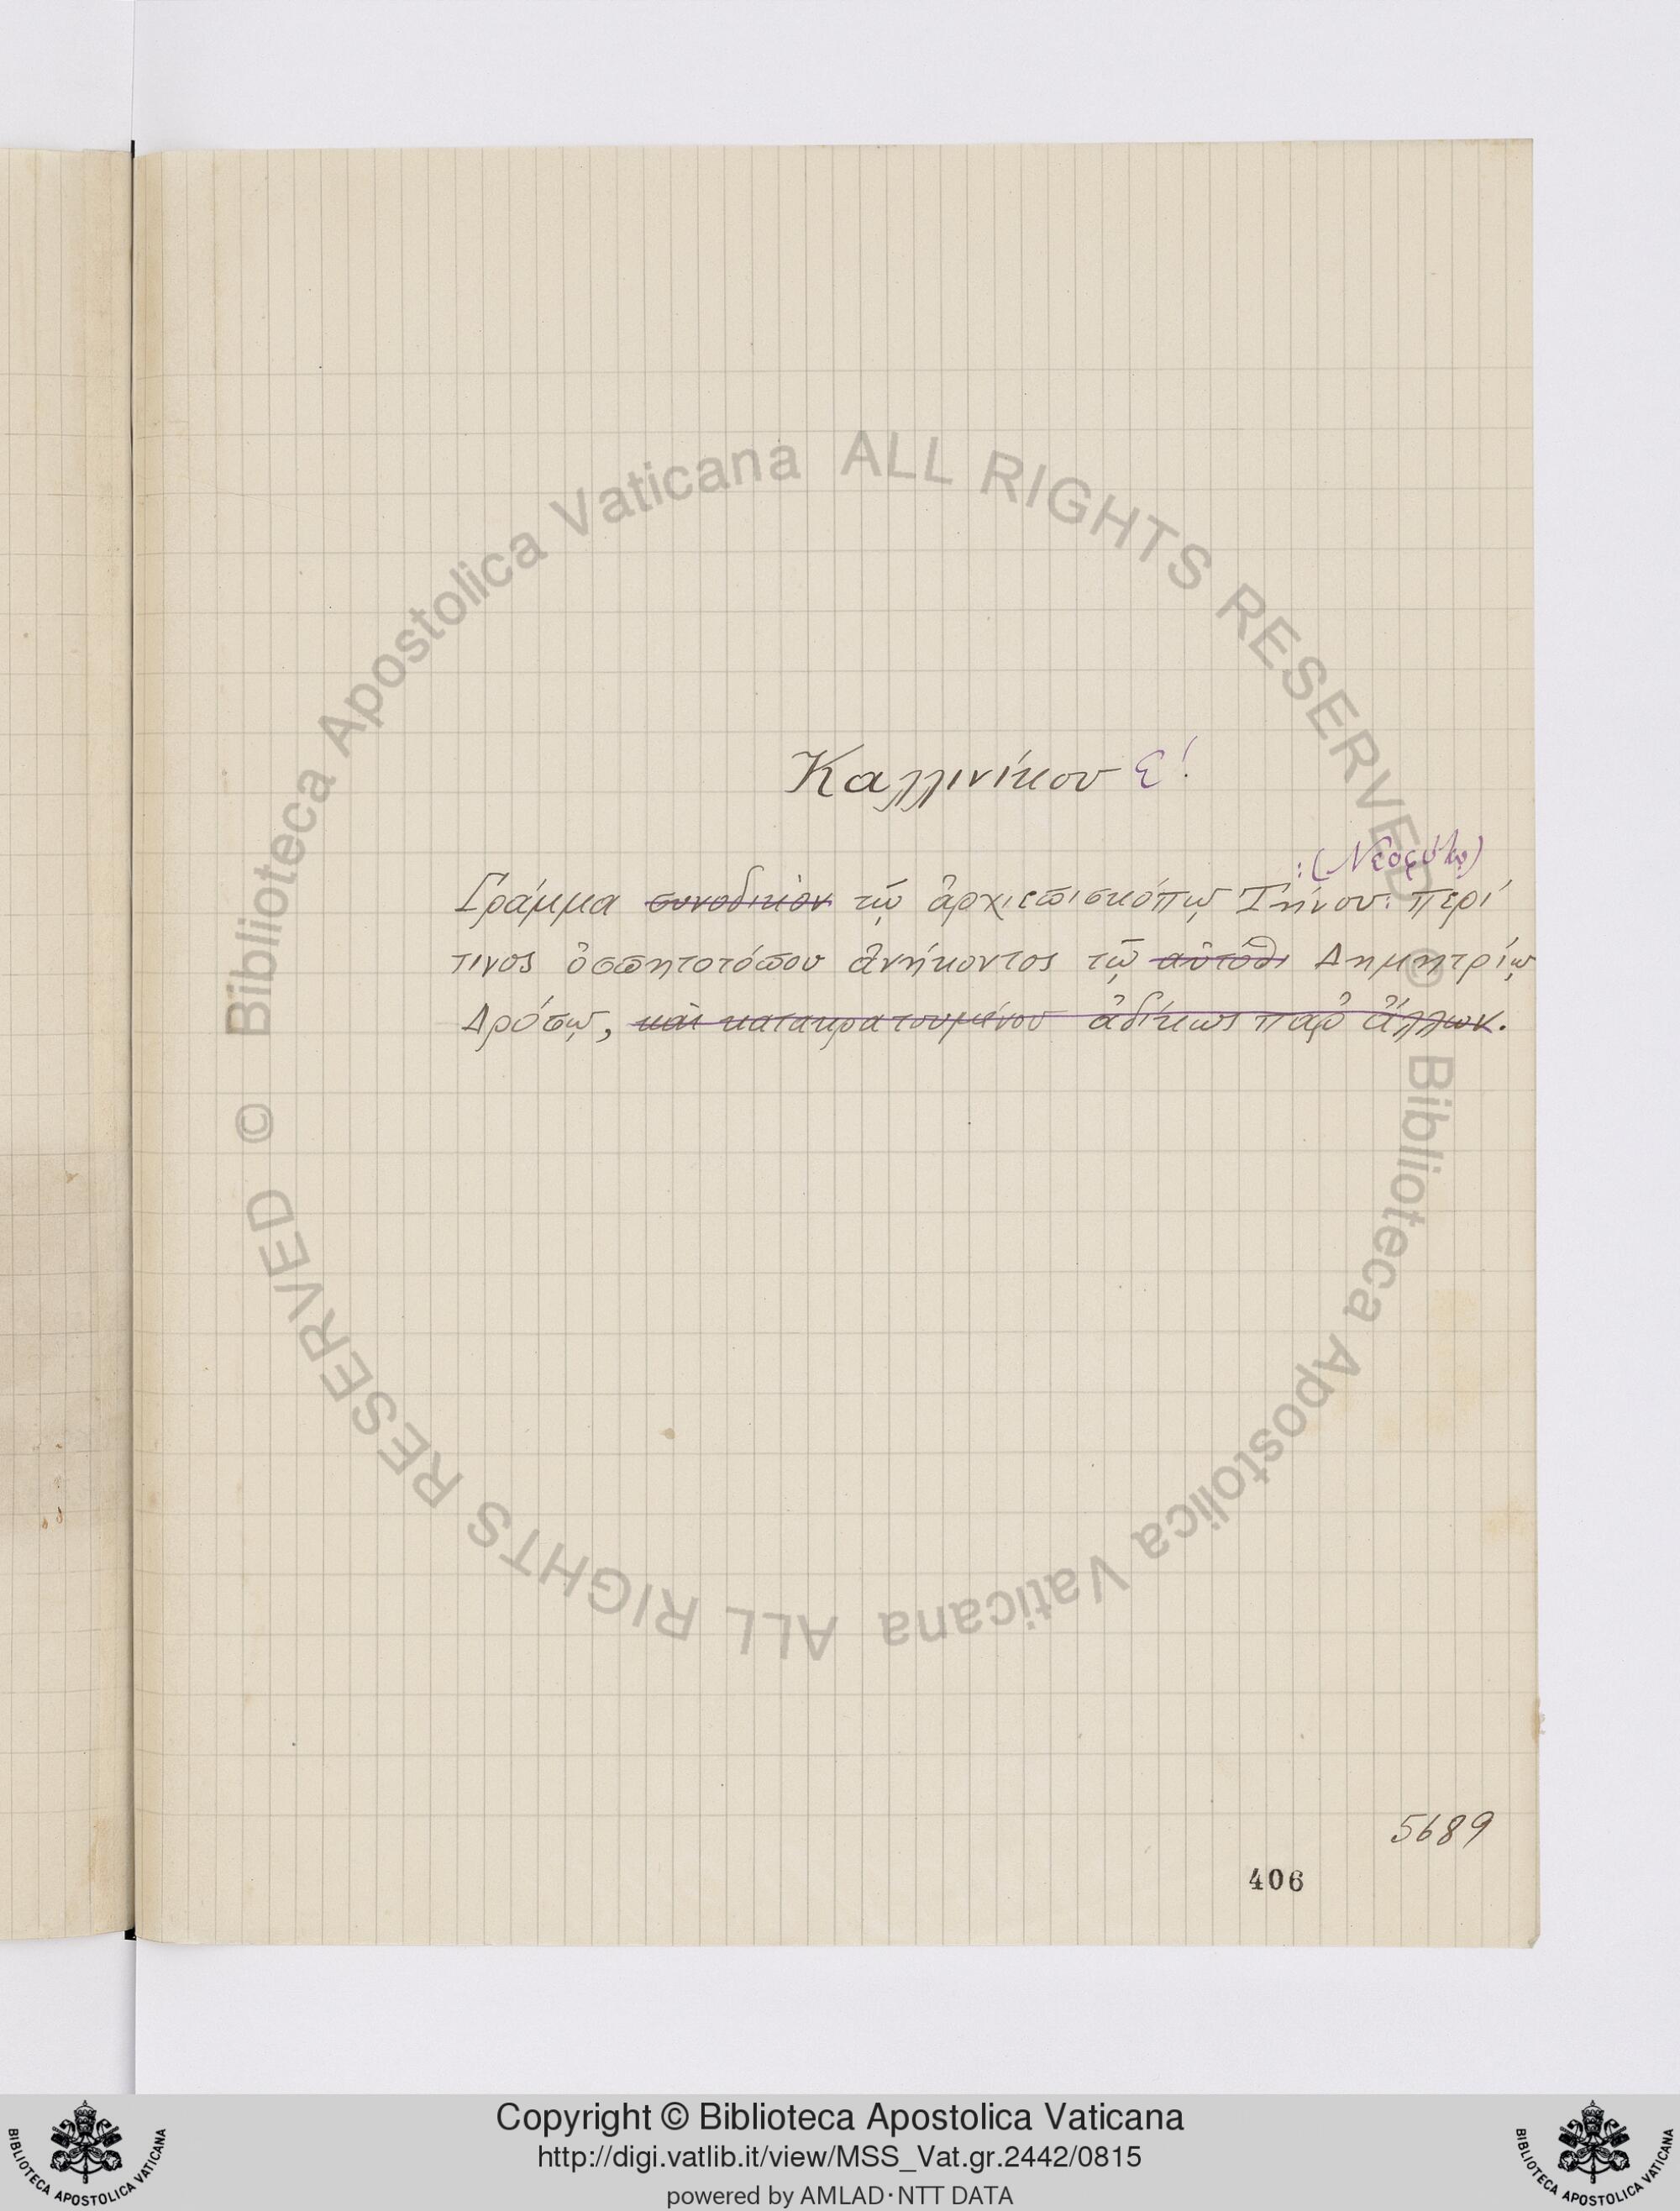 Καλλινίκου Ε΄.
:(Νεοφύτῳ)
Γράμμα συνοδικὸν τῷ ἀρχιεπισκόπῳ Τήνου: περί
τινος ὁσπητοτόπου ἀνήκοντος τῷ αὐτόθι Δημητρίῳ
Δρόσῳ, καὶ κατακρατουμένου ἀδίκως παρ' ἄλλων.
5689
406
© Biblioteca Apostolica Vaticana ALL RIGHTS RESERVED
© Biblioteca Apostolica Vaticana ALL RIGHTS RESERVED
Copyright © Biblioteca Apostolica Vaticana
http://digi.vatlib.it/view/MSS_Vat.gr.2442/0815
powered by AMLAD·NTT DATA
BIBLIOTECA APOSTOLICA VATICANA
BIBLIOTECA APOSTOLICA VATICANA